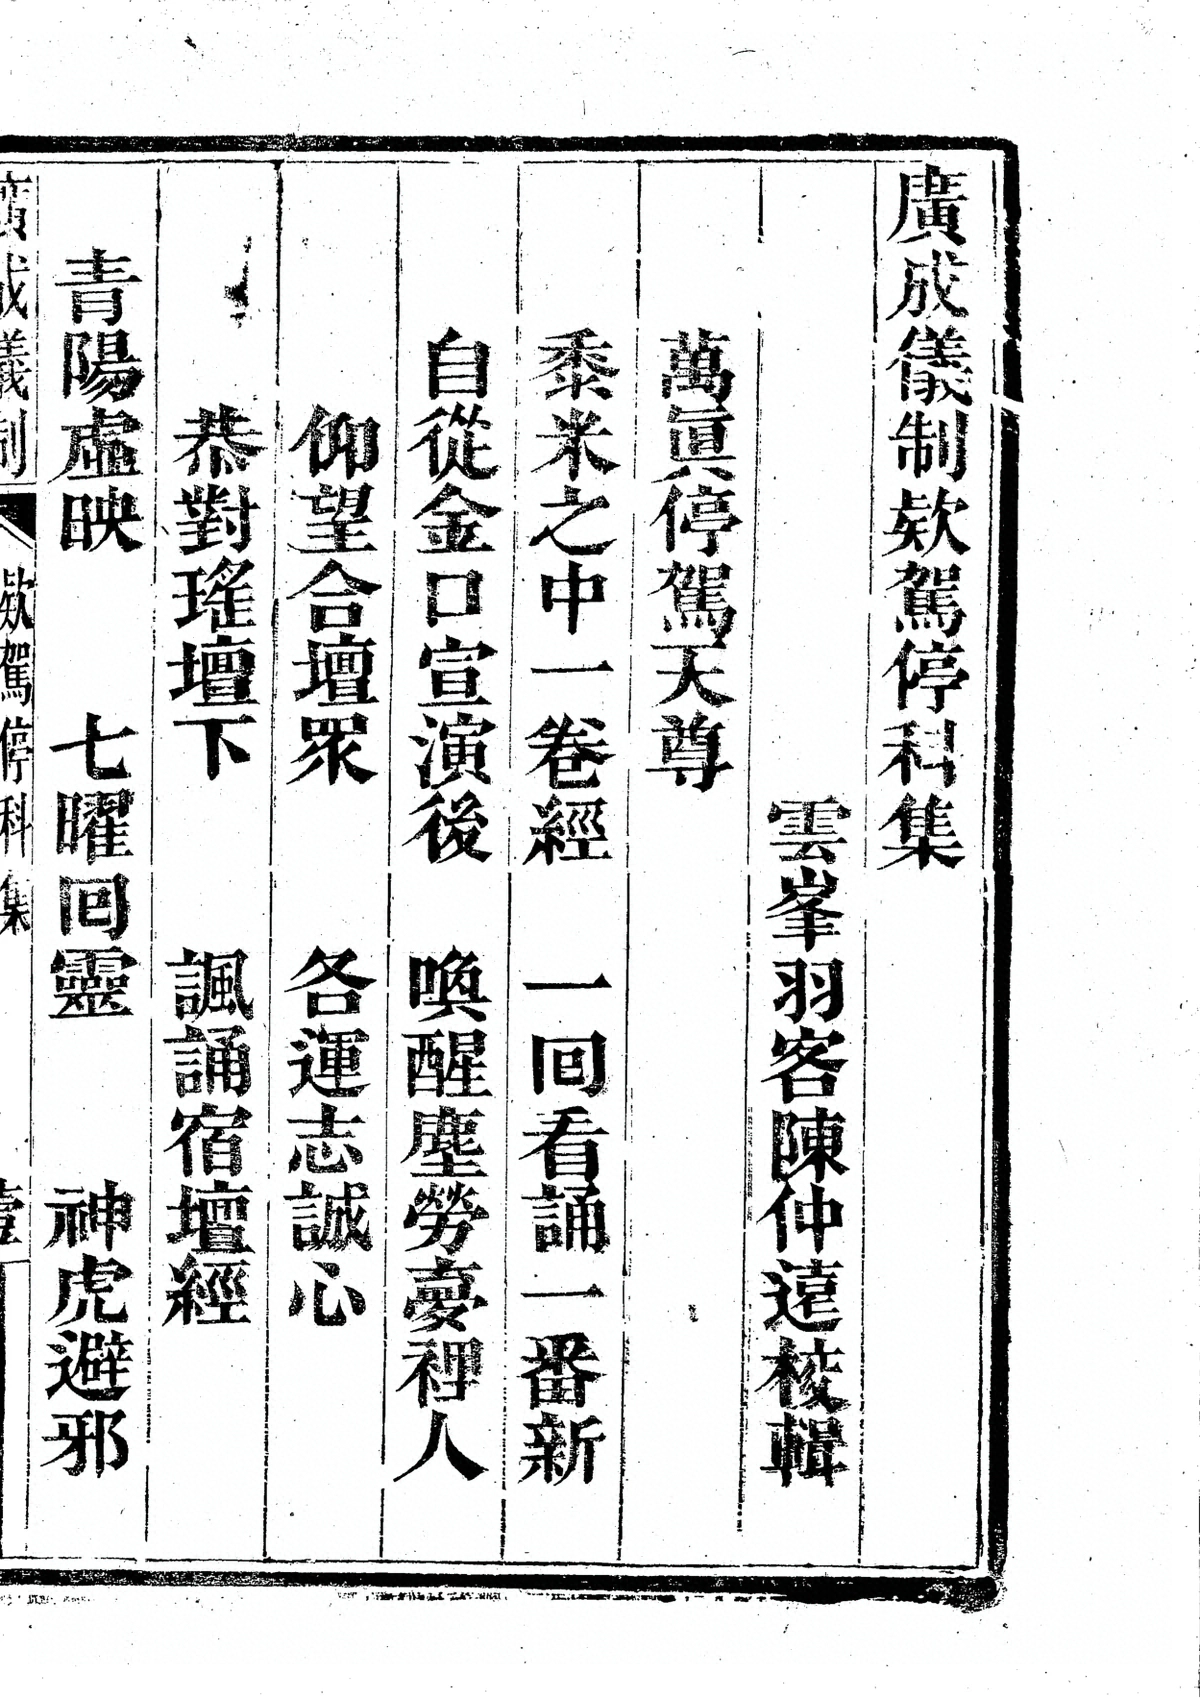 廣成儀制欵駕停科集
雲峯羽客陳仲遠校輯
萬眞停駕天尊
黍米之中一卷經　一回看誦一番新
自從金口宣演後　喚醒塵勞夢裡人
仰望合壇眾　各運志誠心
恭對瑤壇下　諷誦宿壇經
青陽虛映　七曜回靈　神虎避邪
廣成儀制　欵駕停科集　壹